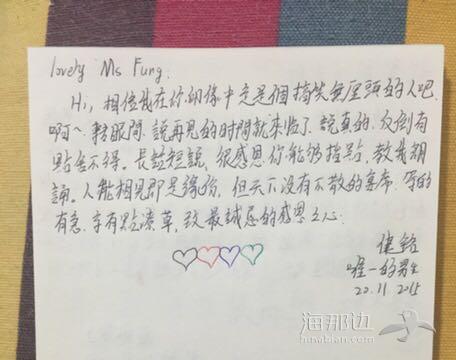 lovely Ms Fung.
Hi, 相信我在你印像中定是個搞笑無厘頭的人吧.
啊~ 轉眼間, 說再見的时間就來临了. 說真的, 反倒有
點舍不得. 長話短說, 很感恩你能够指點, 教我朗
誦。人能相見即是緣份, 但天下沒有不散的宴席. 写的
有急, 字有點潦草, 致最誠懇的感恩之心.
健
唯一的男生
20.11 2015
海那边
hinabian.com